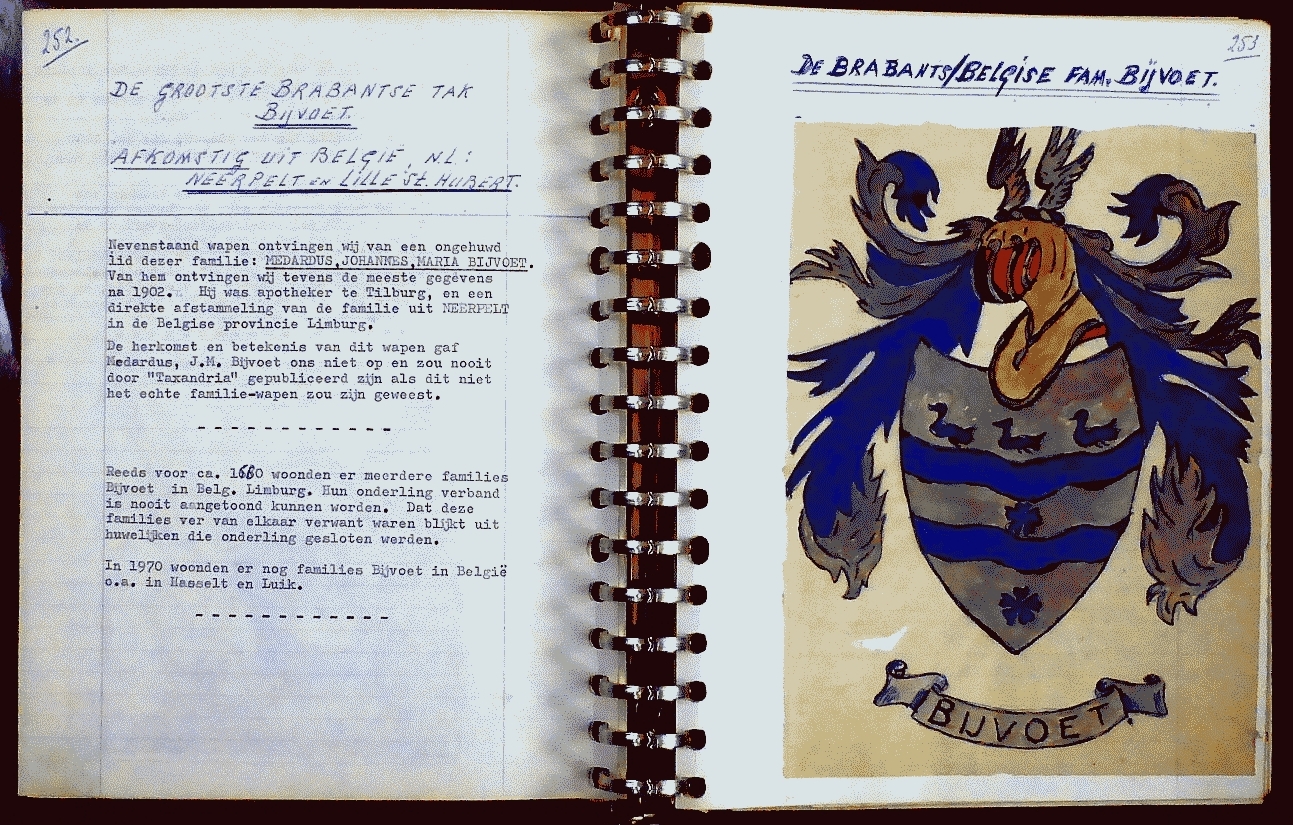 252.
DE GROOTSTE BRABANTSE TAK
BIJVOET.
AFKOMSTIG UIT BELGIË, N.L:
NEERPELT EN LILLE St. HUBERT.
Nevenstaand wapen ontvingen wij van een ongehuwd
lid dezer familie: MEDARDUS,JOHANNES,MARIA BIJVOET.
Van hem ontvingen wij tevens de meeste gegevens
na 1902. Hij was apotheker te Tilburg, en een
direkte afstammeling van de familie uit NEERPELT
in de Belgise provincie Limburg.
De herkomst en betekenis van dit wapen gaf
Medardus, J.M. Bijvoet ons niet op en zou nooit
door "Taxandria" gepubliceerd zijn als dit niet
het echte familie-wapen zou zijn geweest.
- - - - - - - - - - - -
Reeds voor ca. 1680 woonden er meerdere families
Bijvoet in Belg. Limburg. Hun onderling verband
is nooit aangetoond kunnen worden. Dat deze
families ver van elkaar verwant waren blijkt uit
huwelijken die onderling gesloten werden.
In 1970 woonden er nog families Bijvoet in België
o.a. in Hasselt en Luik.
- - - - - - - - - - - -
253
DE BRABANTS/BELGISE FAM. BIJVOET.
BIJVOET.